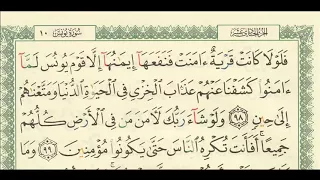 الجزء الحادي عشر سورة يونس ١٠
فَلَوْلَا كَانَتْ قَرْيَةٌ ءَامَنَتْ فَنَفَعَهَآ إِيمَـٰنُهَآ إِلَّا قَوْمَ يُونُسَ لَمَّآ
ءَامَنُوا۟ كَشَفْنَا عَنْهُمْ عَذَابَ ٱلْخِزْىِ فِى ٱلْحَيَوٰةِ ٱلدُّنْيَا وَمَتَّعْنَـٰهُمْ
إِلَىٰ حِينٍ ٩٨ وَلَوْ شَآءَ رَبُّكَ لَـَٔامَنَ مَن فِى ٱلْأَرْضِ كُلُّهُمْ
جَمِيعًا أَفَأَنتَ تُكْرِهُ ٱلنَّاسَ حَتَّىٰ يَكُونُوا۟ مُؤْمِنِينَ ٩٩ وَمَا